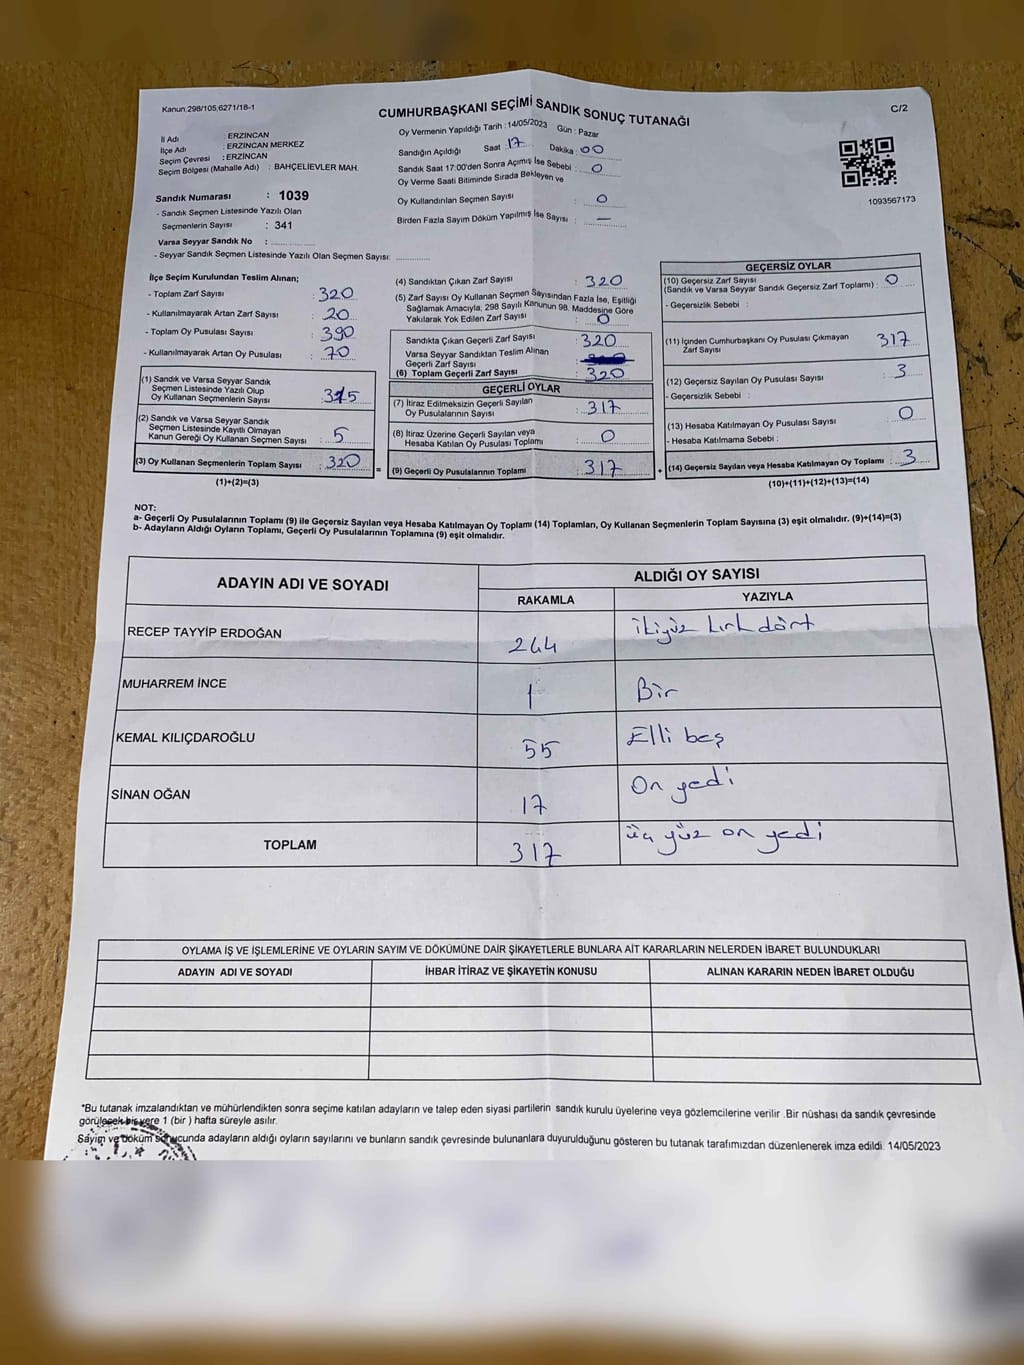 Kanun.298/105,6271/18-1
CUMHURBAŞKANI SEÇİMİ SANDIK SONUÇ TUTANAĞI
C/2
İl Adı : ERZINCAN
İlçe Adı : ERZINCAN MERKEZ
Seçim Çevresi : ERZİNCAN
Seçim Bölgesi (Mahalle Adı) : BAHÇELİEVLER MAH.
Sandık Numarası : 1039
- Sandık Seçmen Listesinde Yazılı Olan
Seçmenlerin Sayısı : 341
Varsa Seyyar Sandık No :
- Seyyar Sandık Seçmen Listesinde Yazılı Olan Seçmen Sayısı:
Oy Vermenin Yapıldığı Tarih : 14/05/2023 Gün : Pazar
Sandığın Açıldığı Saat : 17 Dakika : 00
Sandık Saat 17:00'den Sonra Açımış İse Sebebi : 0
Oy Verme Saati Bitiminde Sırada Bekleyen ve
Oy Kullandırılan Seçmen Sayısı : 0
Birden Fazla Sayım Döküm Yapılmış İse Sayısı : —
1093567173
İlçe Seçim Kurulundan Teslim Alınan;
- Toplam Zarf Sayısı : 320
- Kullanılmayarak Artan Zarf Sayısı : 20
- Toplam Oy Pusulası Sayısı : 390
- Kullanılmayarak Artan Oy Pusulası : 70
(1) Sandık ve Varsa Seyyar Sandık
Seçmen Listesinde Yazılı Olup
Oy Kullanan Seçmenlerin Sayısı : 315
(2) Sandık ve Varsa Seyyar Sandık
Seçmen Listesinde Kayıtlı Olmayan
Kanun Gereği Oy Kullanan Seçmen Sayısı : 5
(3) Oy Kullanan Seçmenlerin Toplam Sayısı : 320
(1)+(2)=(3)
(4) Sandıktan Çıkan Zarf Sayısı : 320
(5) Zarf Sayısı Oy Kullanan Seçmen Sayısından Fazla İse, Eşitliği
Sağlamak Amacıyla, 298 Sayılı Kanunun 98. Maddesine Göre
Yakılarak Yok Edilen Zarf Sayısı : 0
Sandıkta Çıkan Geçerli Zarf Sayısı : 320
Varsa Seyyar Sandıktan Teslim Alınan
Geçerli Zarf Sayısı :
(6) Toplam Geçerli Zarf Sayısı : 320
GEÇERLİ OYLAR
(7) İtiraz Edilmeksizin Geçerli Sayılan
Oy Pusulalarının Sayısı : 317
(8) İtiraz Üzerine Geçerli Sayılan veya
Hesaba Katılan Oy Pusulası Toplamı : 0
= (9) Geçerli Oy Pusulalarının Toplamı : 317 +
GEÇERSİZ OYLAR
(10) Geçersiz Zarf Sayısı
(Sandık ve Varsa Seyyar Sandık Geçersiz Zarf Toplamı) : 0
- Geçersizlik Sebebi :
(11) İçinden Cumhurbaşkanı Oy Pusulası Çıkmayan
Zarf Sayısı 317
(12) Geçersiz Sayılan Oy Pusulası Sayısı : 3
- Geçersizlik Sebebi :
(13) Hesaba Katılmayan Oy Pusulası Sayısı : 0
- Hesaba Katılmama Sebebi :
(14) Geçersiz Sayılan veya Hesaba Katılmayan Oy Toplamı : 3
(10)+(11)+(12)+(13)=(14)
NOT:
a- Geçerli Oy Pusulalarının Toplamı (9) ile Geçersiz Sayılan veya Hesaba Katılmayan Oy Toplamı (14) Toplamları, Oy Kullanan Seçmenlerin Toplam Sayısına (3) eşit olmalıdır. (9)+(14)=(3)
b- Adayların Aldığı Oyların Toplamı, Geçerli Oy Pusulalarının Toplamına (9) eşit olmalıdır.
ADAYIN ADI VE SOYADI ALDIĞI OY SAYISI
RAKAMLA YAZIYLA
RECEP TAYYİP ERDOĞAN 244 ikiyüz kırk dört
MUHARREM İNCE 1 Bir
KEMAL KILIÇDAROĞLU 55 Elli beş
SİNAN OĞAN 17 On yedi
TOPLAM 317 üç yüz on yedi
OYLAMA İŞ VE İŞLEMLERİNE VE OYLARIN SAYIM VE DÖKÜMÜNE DAİR ŞİKAYETLERLE BUNLARA AİT KARARLARIN NELERDEN İBARET BULUNDUKLARI
ADAYIN ADI VE SOYADI İHBAR İTİRAZ VE ŞİKAYETİN KONUSU ALINAN KARARIN NEDEN İBARET OLDUĞU
*Bu tutanak imzalandıktan ve mühürlendikten sonra seçime katılan adayların ve talep eden siyasi partilerin sandık kurulu üyelerine veya gözlemcilerine verilir .Bir nüshası da sandık çevresinde
görülecek bir yere 1 (bir ) hafta süreyle asılır.
Sayım ve döküm sonucunda adayların aldığı oyların sayılarını ve bunların sandık çevresinde bulunanlara duyurulduğunu gösteren bu tutanak tarafımızdan düzenlenerek imza edildi. 14/05/2023